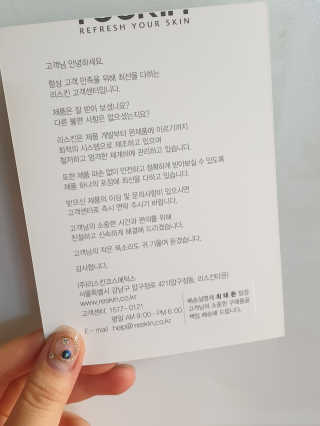 REFRESH YOUR SKIN
고객님 안녕하세요
항상 고객 만족을 위해 최선을 다하는
리스킨 고객센터입니다.
제품은 잘 받아 보셨나요?
다른 불편 사항은 없으셨는지요?
리스킨은 제품 개발부터 완제품에 이르기까지
최적의 시스템으로 제조하고 있으며
철저하고 엄격한 체계하에 관리하고 있습니다.
또한 제품 파손 없이 안전하고 정확하게 받아보실 수 있도록
제품 하나의 포장에 최선을 다하고 있습니다.
받으신 제품의 이상 및 문의사항이 있으시면
고객센터로 즉시 연락 주시기 바랍니다.
고객님의 소중한 시간과 편의를 위해
친절하고 신속하게 해결해 드리겠습니다.
고객님의 작은 목소리도 귀 기울여 듣겠습니다.
감사합니다.
(주)리스킨코스메틱스
서울특별시 강남구 압구정로 421(압구정동, 리스킨타운)
www.reskin.co.kr
고객센터 1577-0121
평일 AM 9:00 - PM 6:00
E-mail help@reskin.co.kr
배송실명제 최재환 팀장
고객님의 소중한 구매품을
책임 배송해 드립니다.